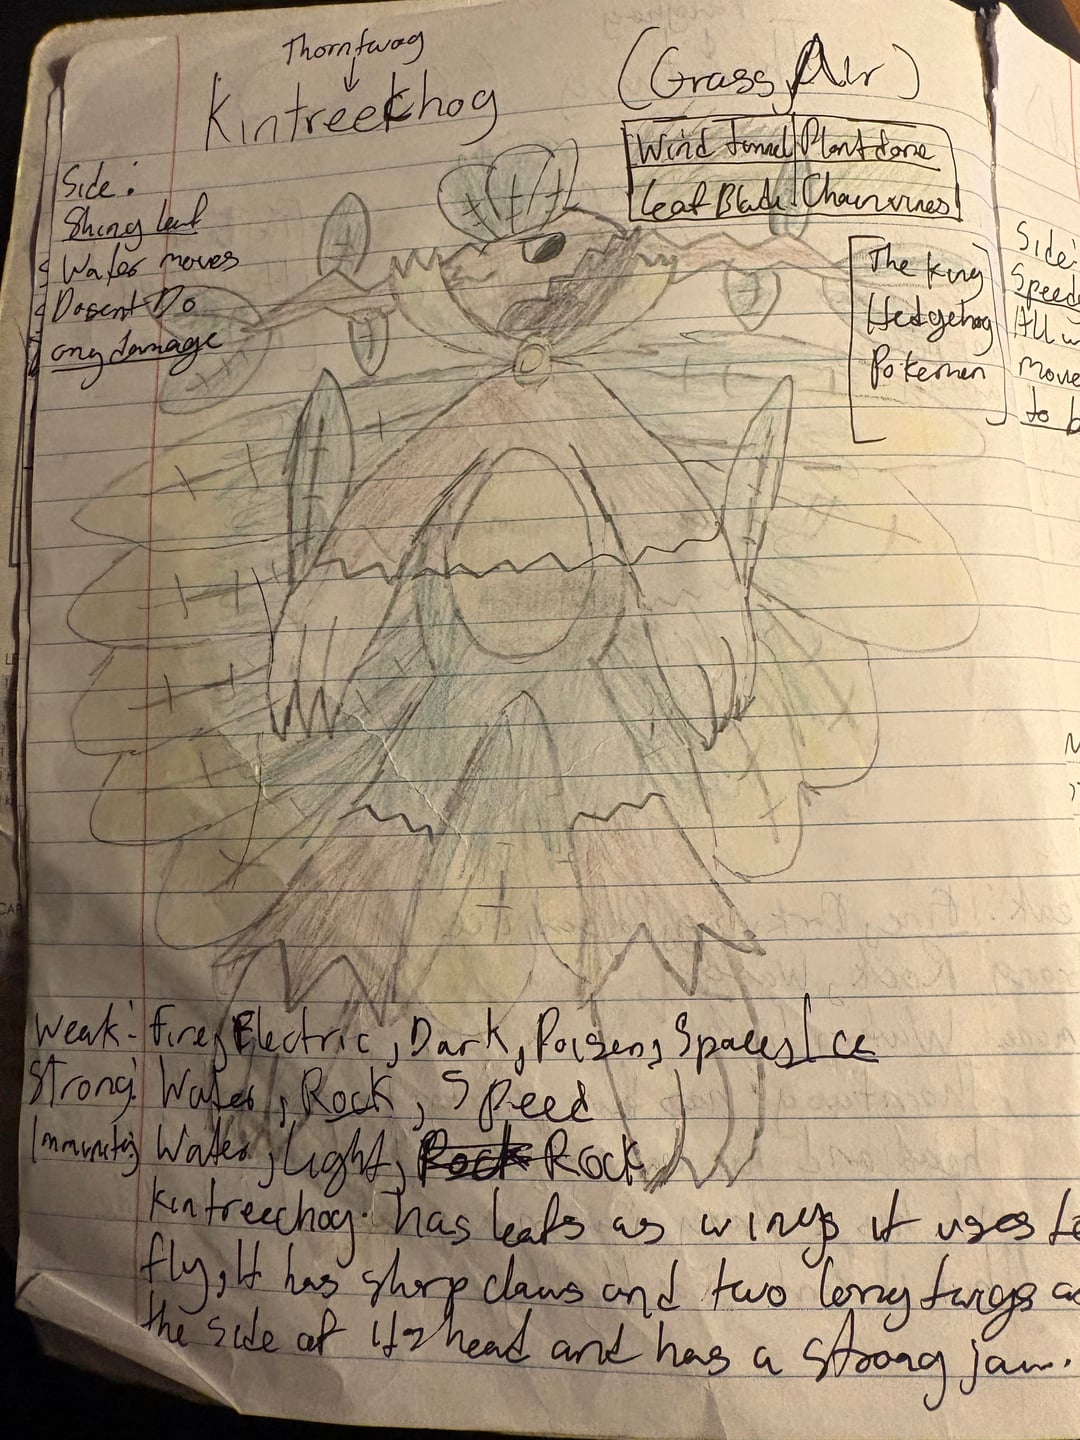 Thorntwog
Kintreechog
(Grass, Air)
Wind Tunnel Plant dome
Leaf Blade Chainvines
Side:
Shing leaf
Water moves
Dosent Do
any damage
The King
Hedgehog
Pokemen
Side:
Speed
All w
move
to b
Weak: fire, Electric, Dark, Poisen, Space, Ice
Strong: Water, Rock, Speed
Immunitis Water, Light, Rock
Kintreechog: has leafs as wings it uses to
fly, It has sharp claws and two long twigs
the side of its head and has a strong jaw.